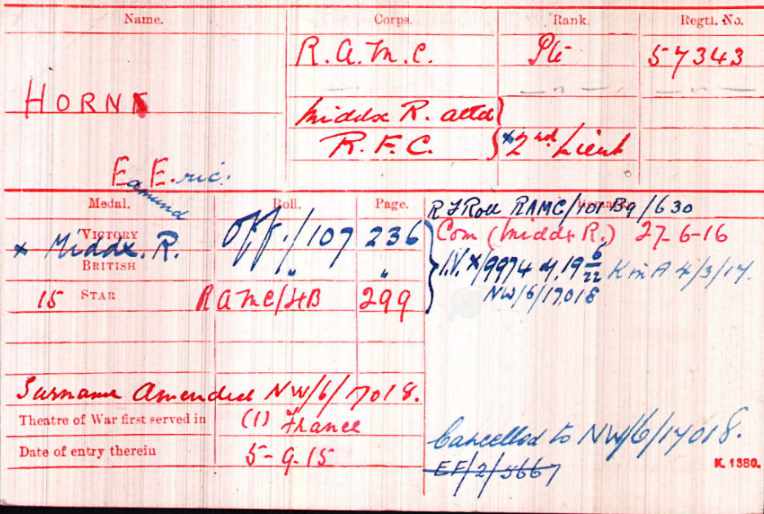 Name. Corps. Rank. Regtl. No.
R.A.M.C. Pte 57343
HORN
Middx R. attd
R.F.C. x 2nd Lieut
E. E.ric.
dmund
Medal. Roll. Page. Remarks.
R J Roll RAMC/101 B9/630
VICTORY Off./107 236 Com (Middx R.) 27-6-16
x Middx. R.
BRITISH " " I.V. x/9974 d. 19 6/22 K in A 4/3/17.
NW/6/17018
15 STAR RAMC/4B 299
Surname Amended NW/6/17018.
Theatre of War first served in (1) France
Date of entry therein 5-9-15
Cancelled to NW/6/17018.
EF/2/5667
K. 1380.